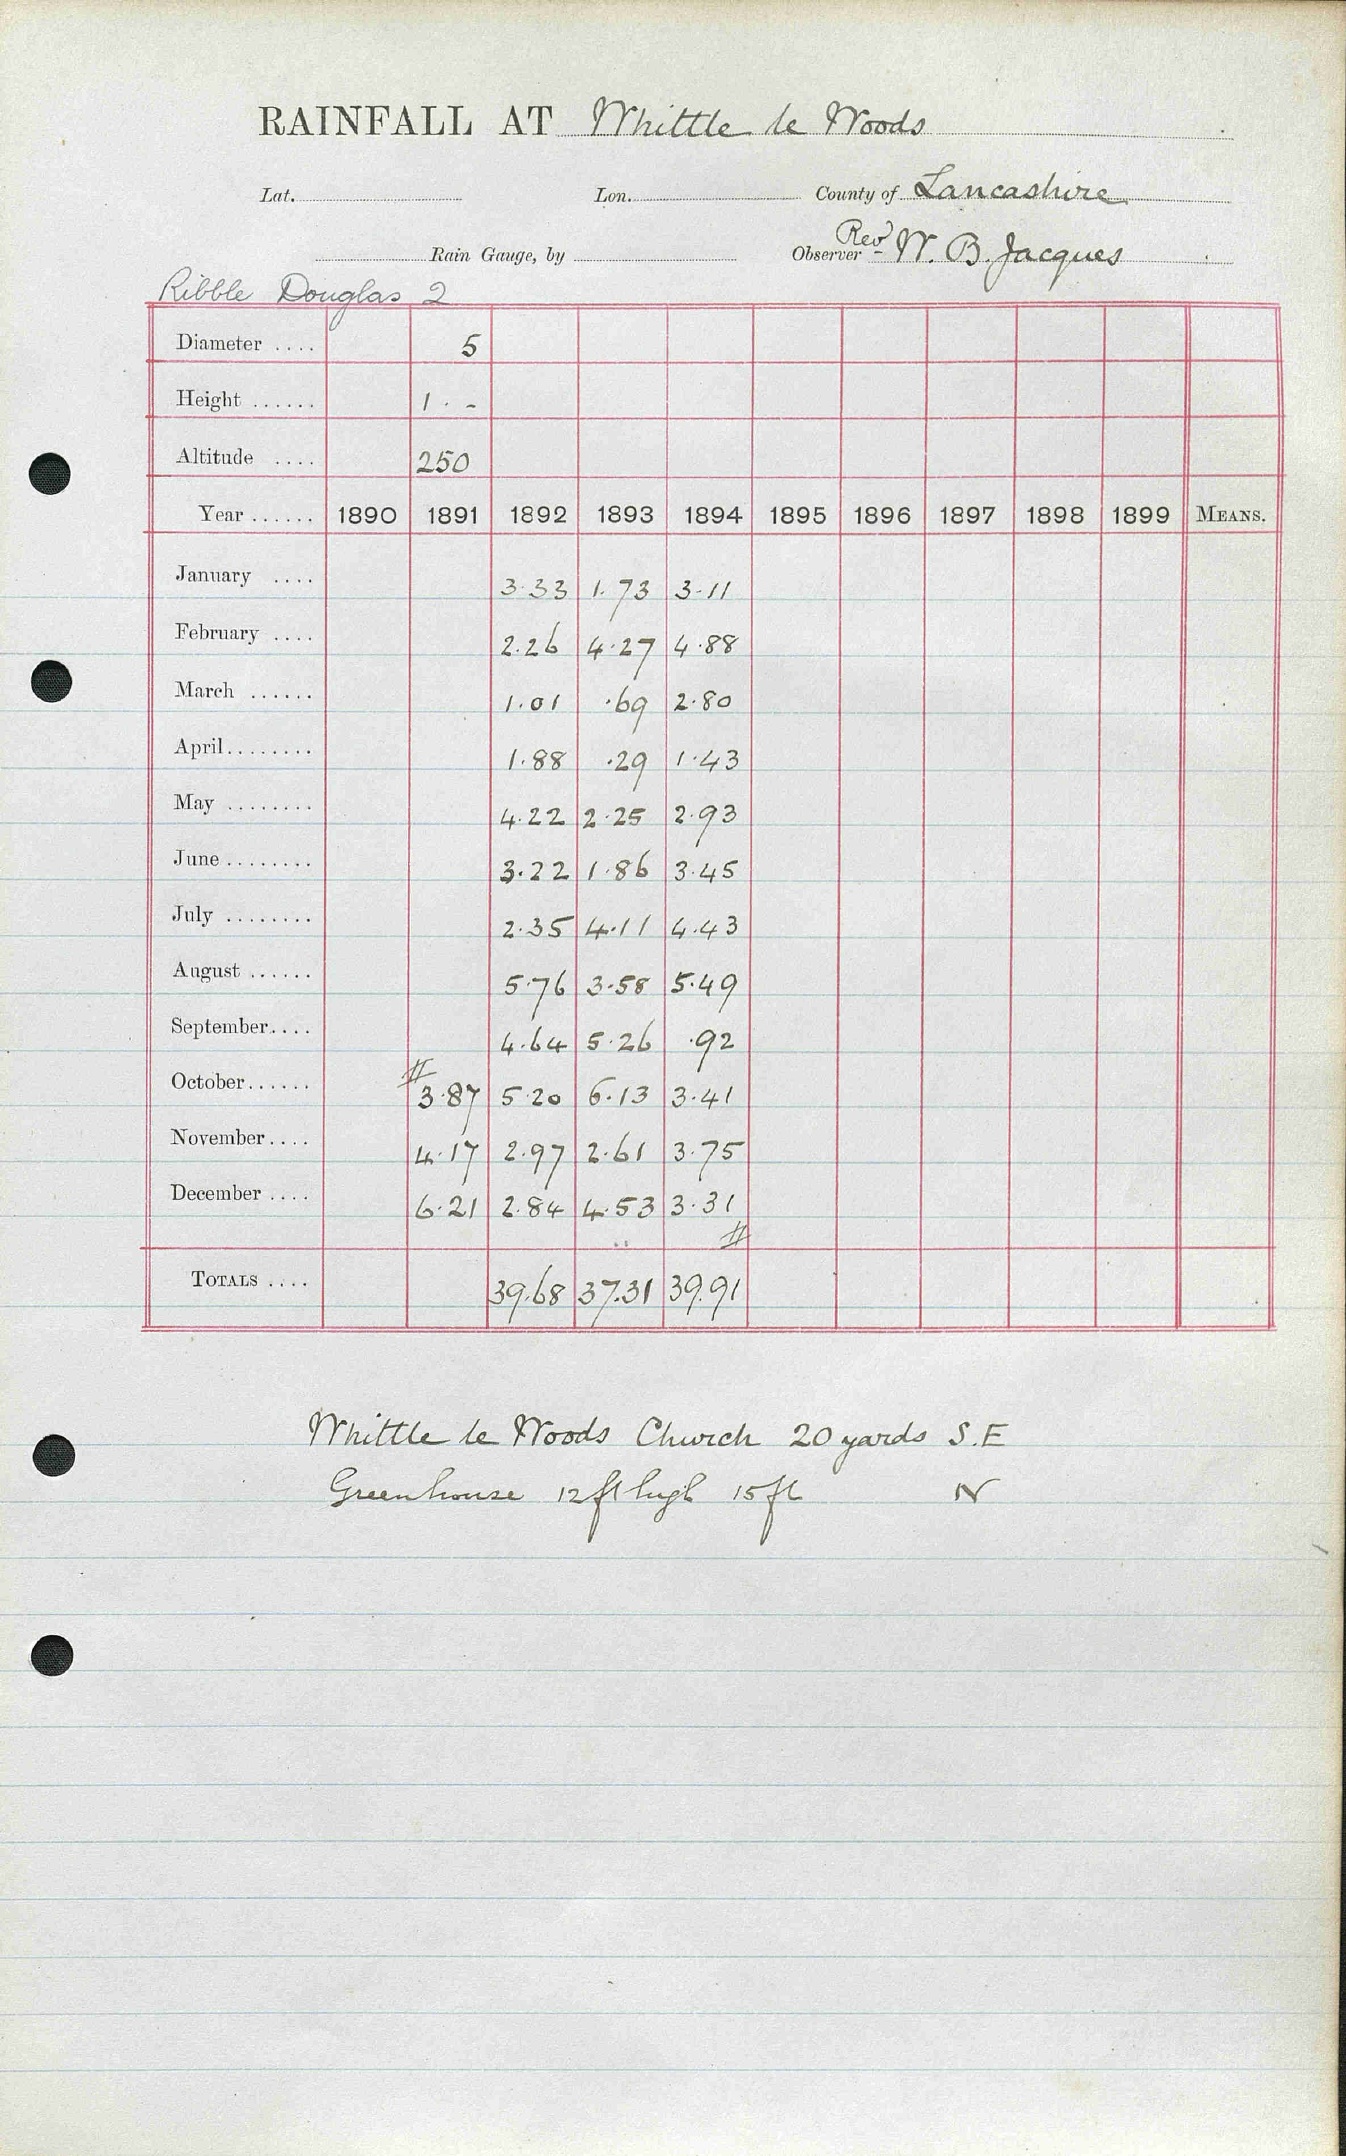 RAINFALL AT Whittle le Woods
Lat. Lon. County of Lancashire
Rain Gauge, by Observer Revd W. B. Jacques
Ribble Douglas 2
Diameter .... 5
Height ...... 1 . -
Altitude .... 250
Year ...... 1890 1891 1892 1893 1894 1895 1896 1897 1898 1899 MEANS.
January .... 3.33 1.73 3.11
February .... 2.26 4.27 4.88
March ...... 1.01 .69 2.80
April........ 1.88 .29 1.43
May ........ 4.22 2.25 2.93
June........ 3.22 1.86 3.45
July ........ 2.35 4.11 4.43
August ...... 5.76 3.58 5.49
September.... 4.64 5.26 .92
October...... 3.87 5.20 6.13 3.41
November.... 4.17 2.97 2.61 3.75
December .... 6.21 2.84 4.53 3.31
TOTALS .... 39.68 37.31 39.91
Whittle le Woods Church 20 yards S.E
Greenhouse 12 ft high 15 ft N